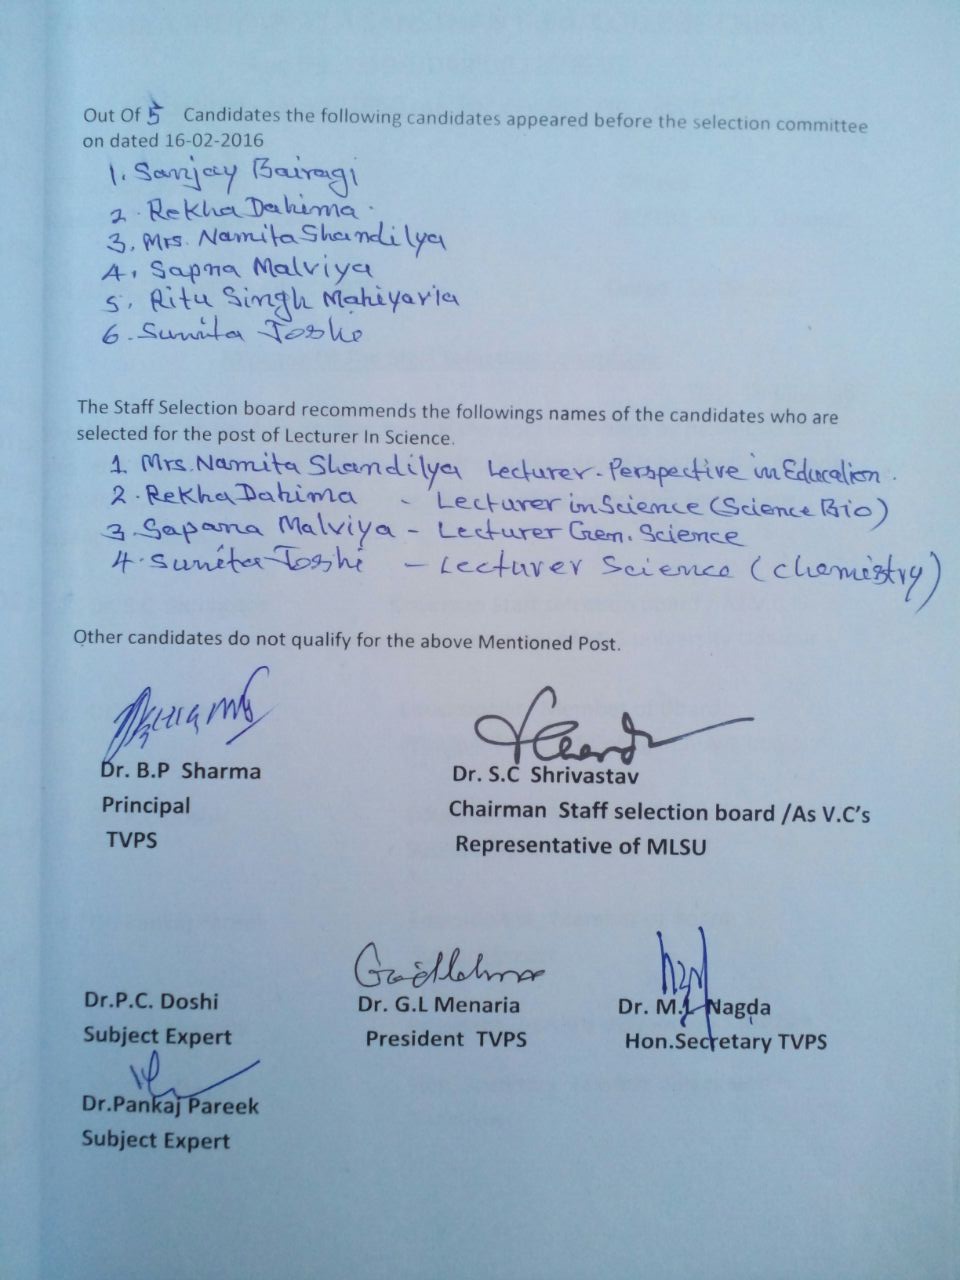 Out Of 5 Candidates the following candidates appeared before the selection committee
on dated 16-02-2016
1. Sanjay Bairagi
2. Rekha Dahima.
3. Mrs. Namita Shandilya
4. Sapna Malviya
5. Ritu Singh Mahiyaria
6. Sunita Joshe
The Staff Selection board recommends the followings names of the candidates who are
selected for the post of Lecturer In Science.
1. Mrs. Namita Shandilya Lecturer. Perspective in Education.
2. Rekha Dahima - Lecturer in Science (Science Bio)
3. Sapana Malviya - Lecturer Gen. Science
4. Sunita Joshi - Lecturer Science (Chemistry)
Other candidates do not qualify for the above Mentioned Post.
Dr. B.P Sharma
Principal
TVPS
Dr. S.C Shrivastav
Chairman Staff selection board /As V.C's
Representative of MLSU
Dr.P.C. Doshi
Subject Expert
Dr. G.L Menaria
President TVPS
Dr. M.L Nagda
Hon.Secretary TVPS
Dr.Pankaj Pareek
Subject Expert